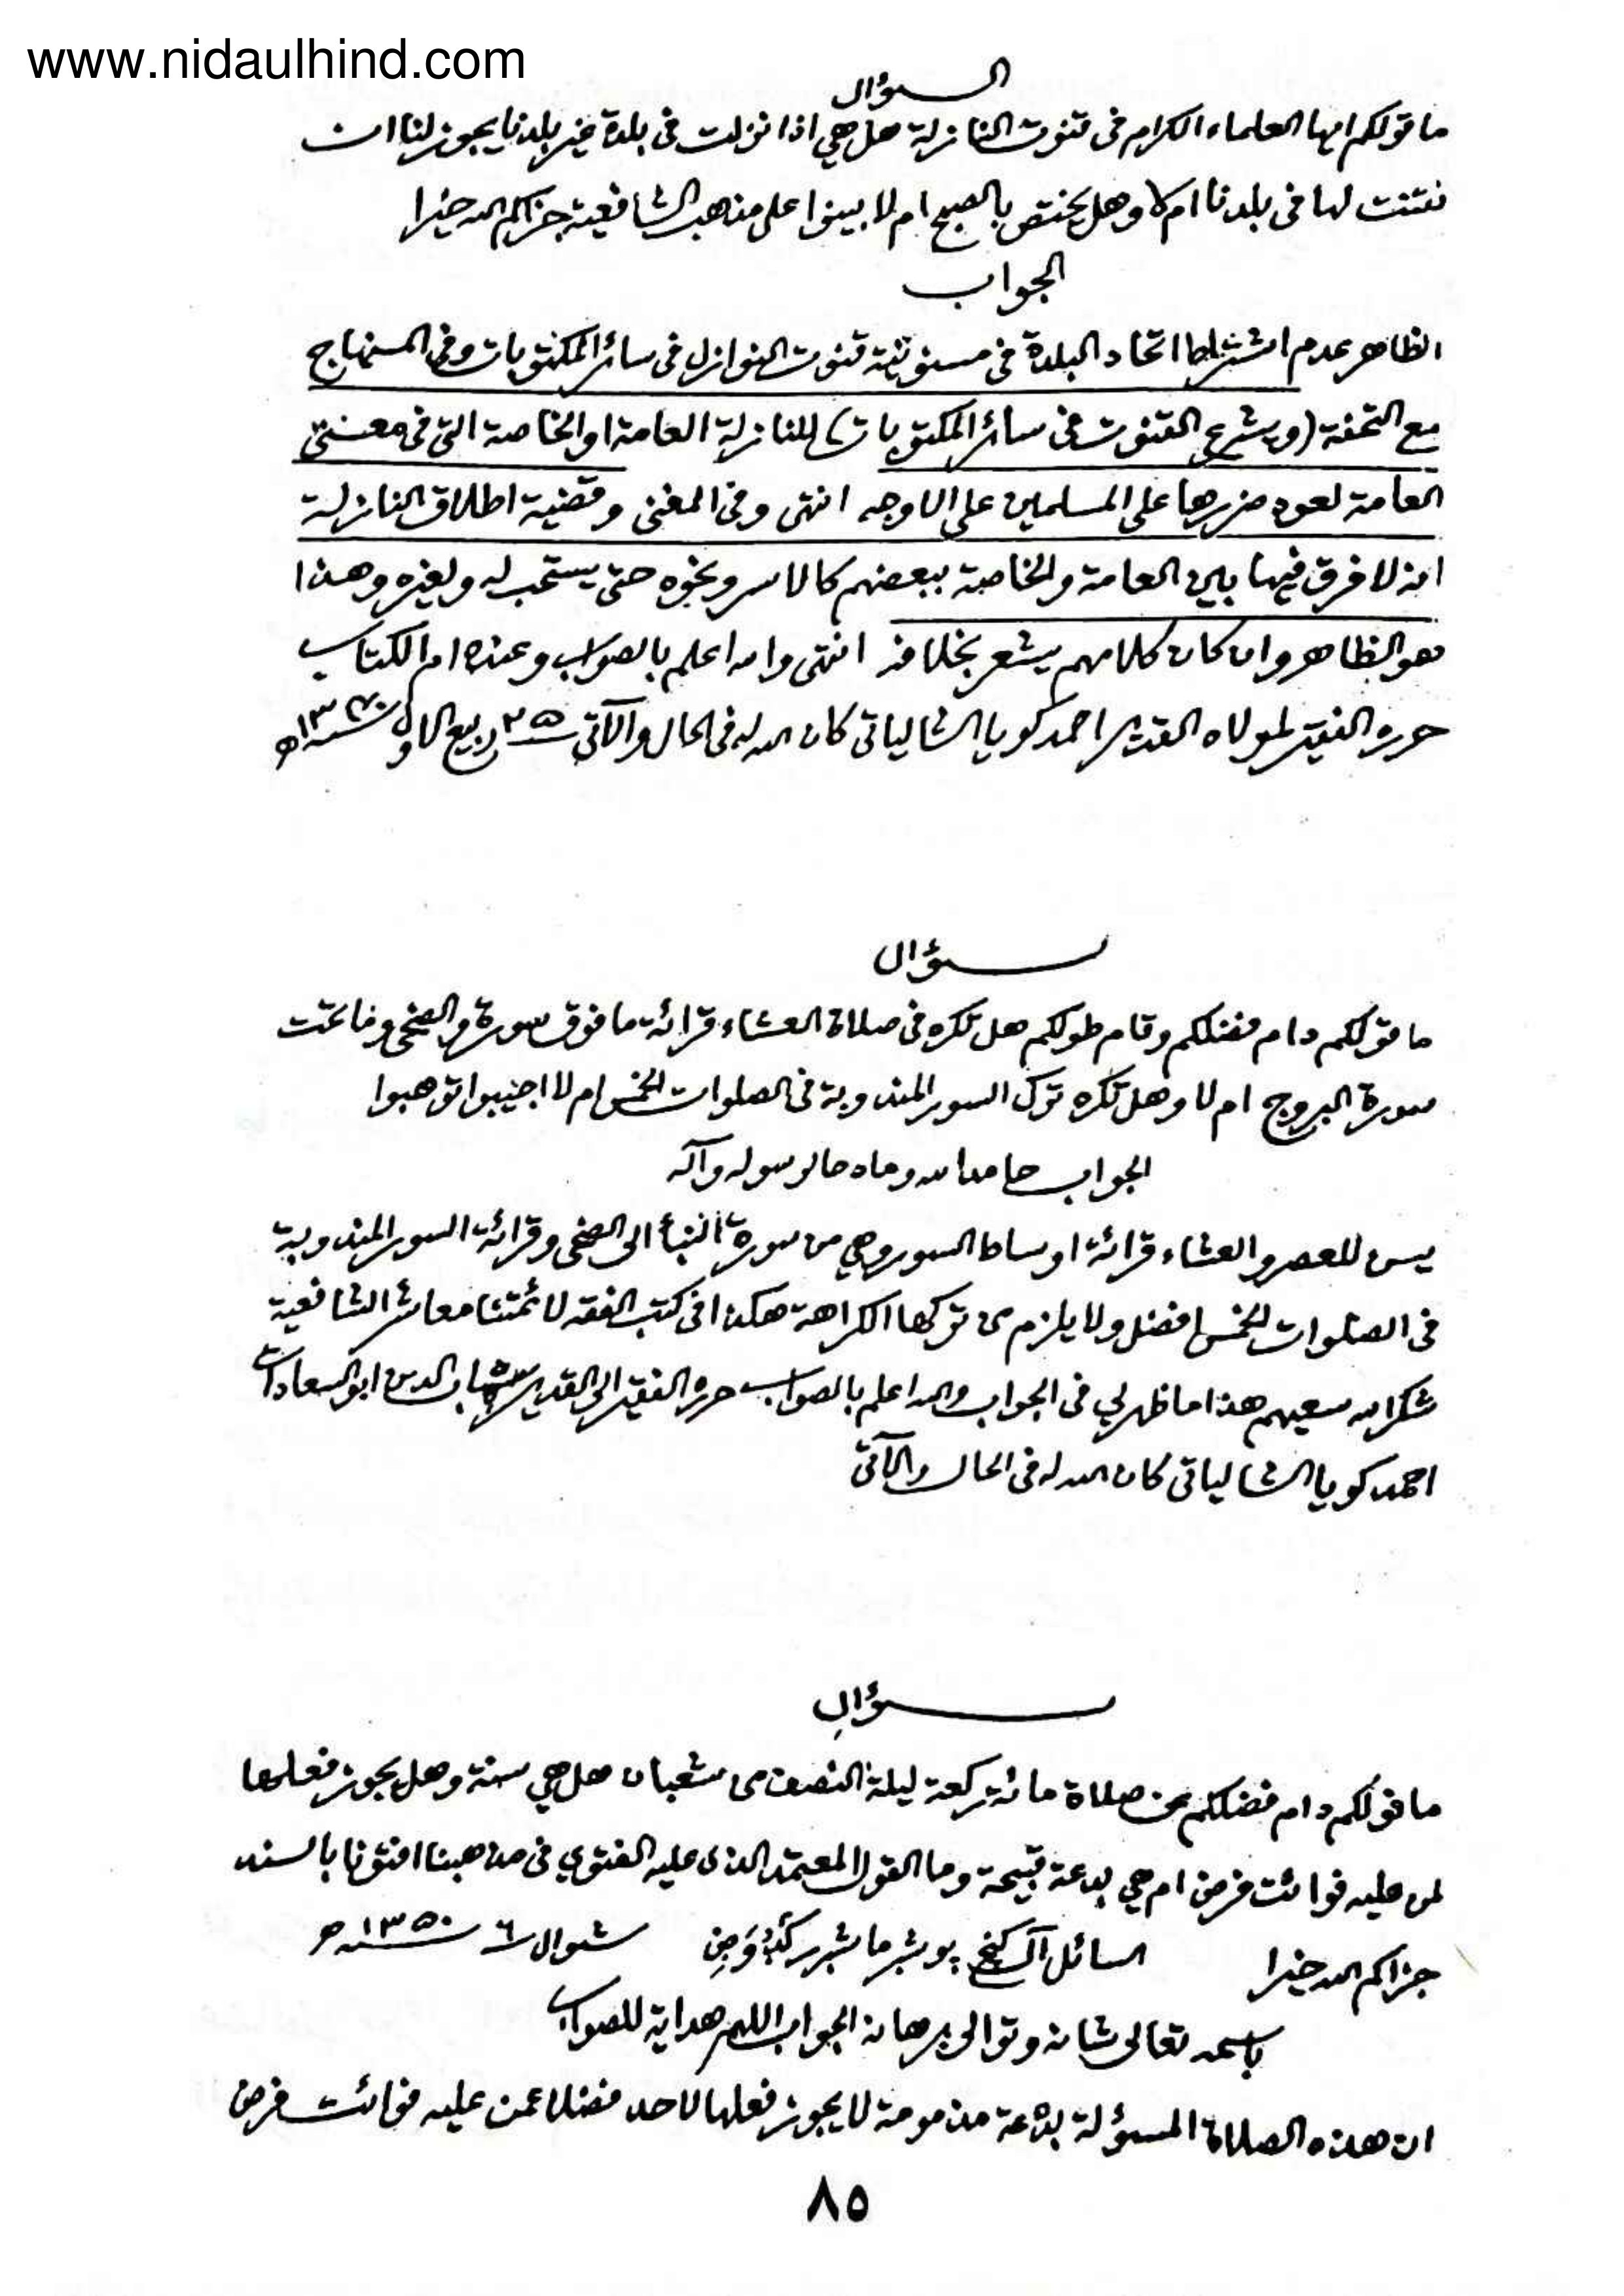 www.nidaulhind.com
السؤال
ما قولكم ايها العلماء الكرام فى قنوت النازلة هل هي اذا نزلت فى بلدة غير بلدنا يجوز لنا ان
نقنت لها فى بلدنا ام لا وهل يختص بالصبح ام لا بينوا على مذهب الشافعية جزاكم الله خيرا
الجواب
الظاهر عدم اشتراط اتحاد البلدة فى مسنونية قنوت النوازل فى سائر المكتوبات وفى المنهاج
مع التحفة (ويشرع القنوت فى سائر المكتوبات) للنازلة العامة او الخاصة التى فى معنى
العامة لعود ضررها على المسلمين على الاوجه انتهى وفى المغنى وقضية اطلاق النازلة
انه لا فرق فيها بين العامة والخاصة ببعضهم كالاسر ونحوه حتى يستحب له ولغيره وهذا
هو الظاهر وان كان كلامهم يشعر بخلافه انتهى والله اعلم بالصواب وعنده ام الكتاب
حرره الفقير لمولاه القدير احمد كويا الشالياتى كان الله له فى الحال والآتى ٢٥ ربيع الاول سنه ه
سؤال
ما قولكم دام فضلكم وقام طولكم هل تكره فى صلاة العشاء قرائة ما فوق سورة والضحى وما تحت
سورة البروج ام لا وهل تكره ترك السور المندوبة فى الصلوات الخمس ام لا اجيبوا توهبوا
الجواب حامدا لله ومادحا لرسوله وآله
يسن للعصر والعشاء قرائة اوساط السور وهي من سورة النبأ الى الضحى وقرائة السور المندوبة
فى الصلوات الخمس افضل ولا يلزم من تركها الكراهة هكذا فى كتب الفقه لائمتنا معاشر الشافعية
شكر الله سعيهم هذا ما ظهر لي فى الجواب والله اعلم بالصواب حرره الفقير الى القدير شهاب الدين ابو السعادات
احمد كويا الشالياتى كان الله له فى الحال والآتى
سؤال
ما قولكم دام فضلكم عن صلاة مائة ركعة ليلة النصف من شعبان هل هي سنة وهل يجوز فعلها
لمن عليه فوائت فرض ام هي بدعة قبيحة وما القول المعتمد الذى عليه الفتوي فى مذهبنا افتونا بالسند
جزاكم الله خيرا السائل شوال ٦ سنه ١٣٥٠ ه
باسمه تعالى شانه وتوالى برهانه الجواب اللهم هداية للصواب
ان هذه الصلاة المسؤلة بدعة مذمومة لا يجوز فعلها لاحد فضلا عمن عليه فوائت فرض
٨٥